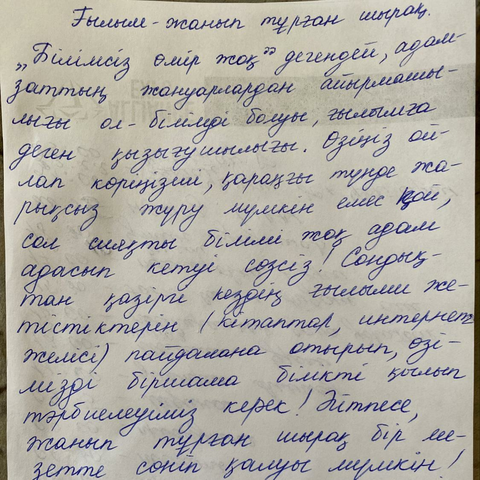 Ғылым-жанып тұрған шырақ.
„Білімсіз өмір жоқ" дегендей, адам-
заттың жануарлардан айырмашы-
лығы ол-білімді болуы, ғылымға
деген қызығушылығы. Өзіңіз ой-
лап көріңізші, қараңғы түнде жа-
рықсыз жүру мүмкін емес қой,
сол сияқты білімі жоқ адам
адасып кетуі сөзсіз! Сондық-
тан қазіргі кездің ғылыми же-
тістіктерін (кітаптар, интернет
желісі) пайдалана отырып, өзі-
мізді біршама білікті қылып
тәрбиелеуіміз керек! Әйтпесе,
жанып тұрған шырақ бір ме-
зетте сөніп қалуы мүмкін!